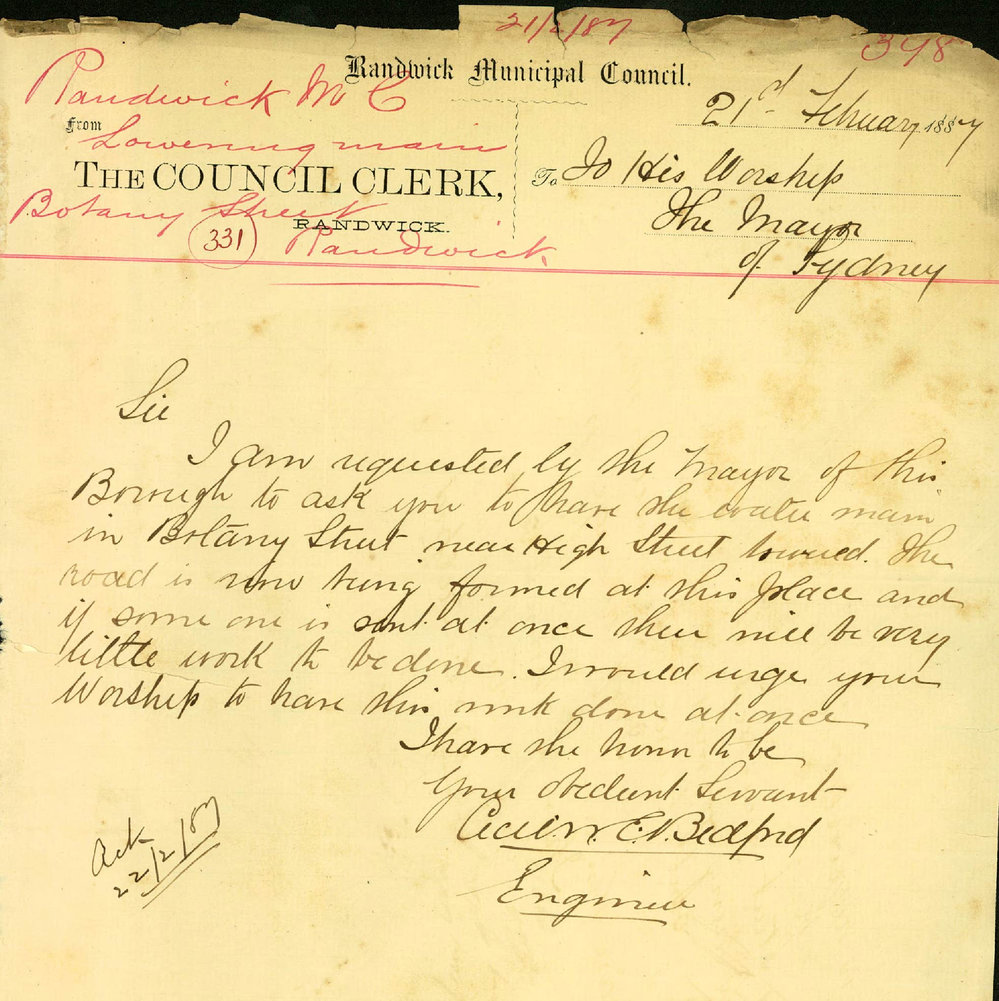 21/2/87
398
Randwick Municipal Council.
Randwick M C
21st February 1887
From
Lowering main
THE COUNCIL CLERK,
To To His Worship
Botany Street
RANDWICK.
The Mayor
331
Randwick
of Sydney
Sir
I am requested by the Mayor of this
Borough to ask you to have the water main
in Botany Street near High Street lowered. The
road is now being formed at this place and
if some one is sent at once there will be very
little work to be done. I would urge your
Worship to have this work done at once
I have the honor to be
Your obedient Servant
Cecil W. E. Bedford
Engineer
Ack
22/2/87